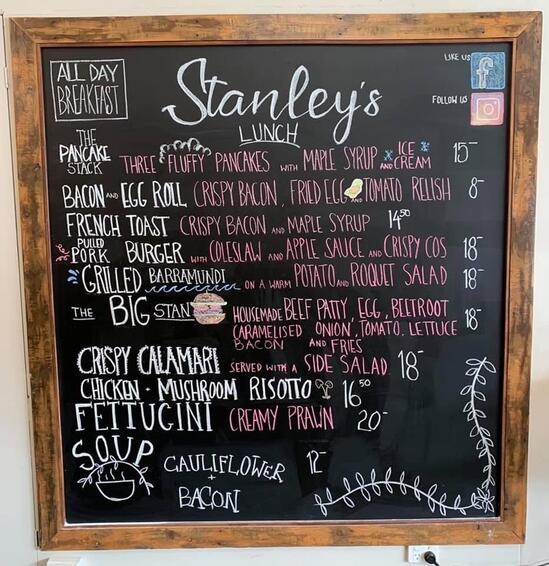 ALL DAY
BREAKFAST
Stanley's
LUNCH
LIKE US
f
FOLLOW US
THE
PANCAKE
STACK
THREE FLUFFY PANCAKES WITH MAPLE SYRUP AND ICE CREAM 15-
BACON AND EGG ROLL CRISPY BACON, FRIED EGG AND TOMATO RELISH 8-
FRENCH TOAST CRISPY BACON AND MAPLE SYRUP 14.50
PULLED
PORK BURGER WITH COLESLAW AND APPLE SAUCE AND CRISPY COS 18-
GRILLED BARRAMUNDI ON A WARM POTATO AND ROQUET SALAD 18-
THE BIG STAN HOUSEMADE BEEF PATTY, EGG, BEETROOT 18-
CARAMELISED ONION, TOMATO, LETTUCE
BACON AND FRIES
CRISPY CALAMARI SERVED WITH A SIDE SALAD 18-
CHICKEN + MUSHROOM RISOTTO 16.50
FETTUGINI CREAMY PRAWN 20-
SOUP
CAULIFLOWER 12-
+
BACON